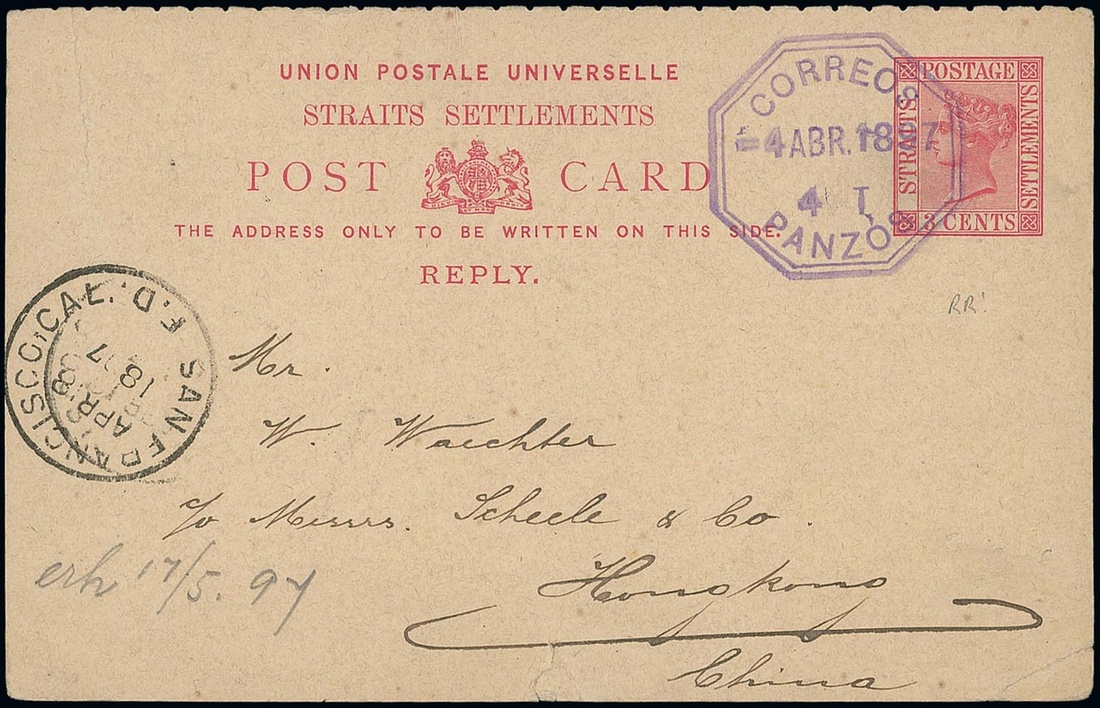 UNION POSTALE UNIVERSELLE
STRAITS SETTLEMENTS
POST CARD
THE ADDRESS ONLY TO BE WRITTEN ON THIS SIDE.
REPLY.
CORREOS
4 ABR. 1897
4 T
PANZOS
POSTAGE
STRAITS
SETTLEMENTS
3 CENTS
RR!
SAN FRANCISCO, CAL. F.D.
APR 18
97
Mr.
W. Waechter
c/o Messrs. Scheele & Co.
Hongkong
China
erh 17/5. 97